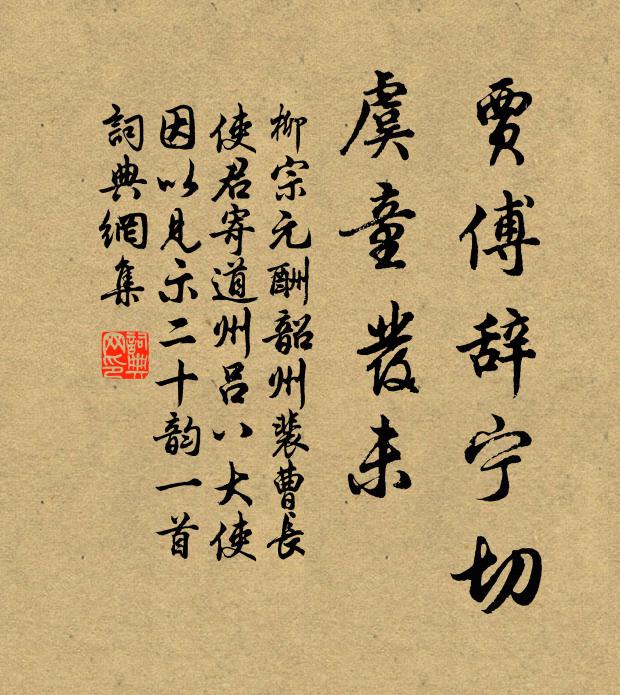 賈傅辞宁切
虞童發未
柳宗元酬韶州裴曹長
使君寄道州吕八大使
因以見示二十韵一首
詞典網集
詞典网印